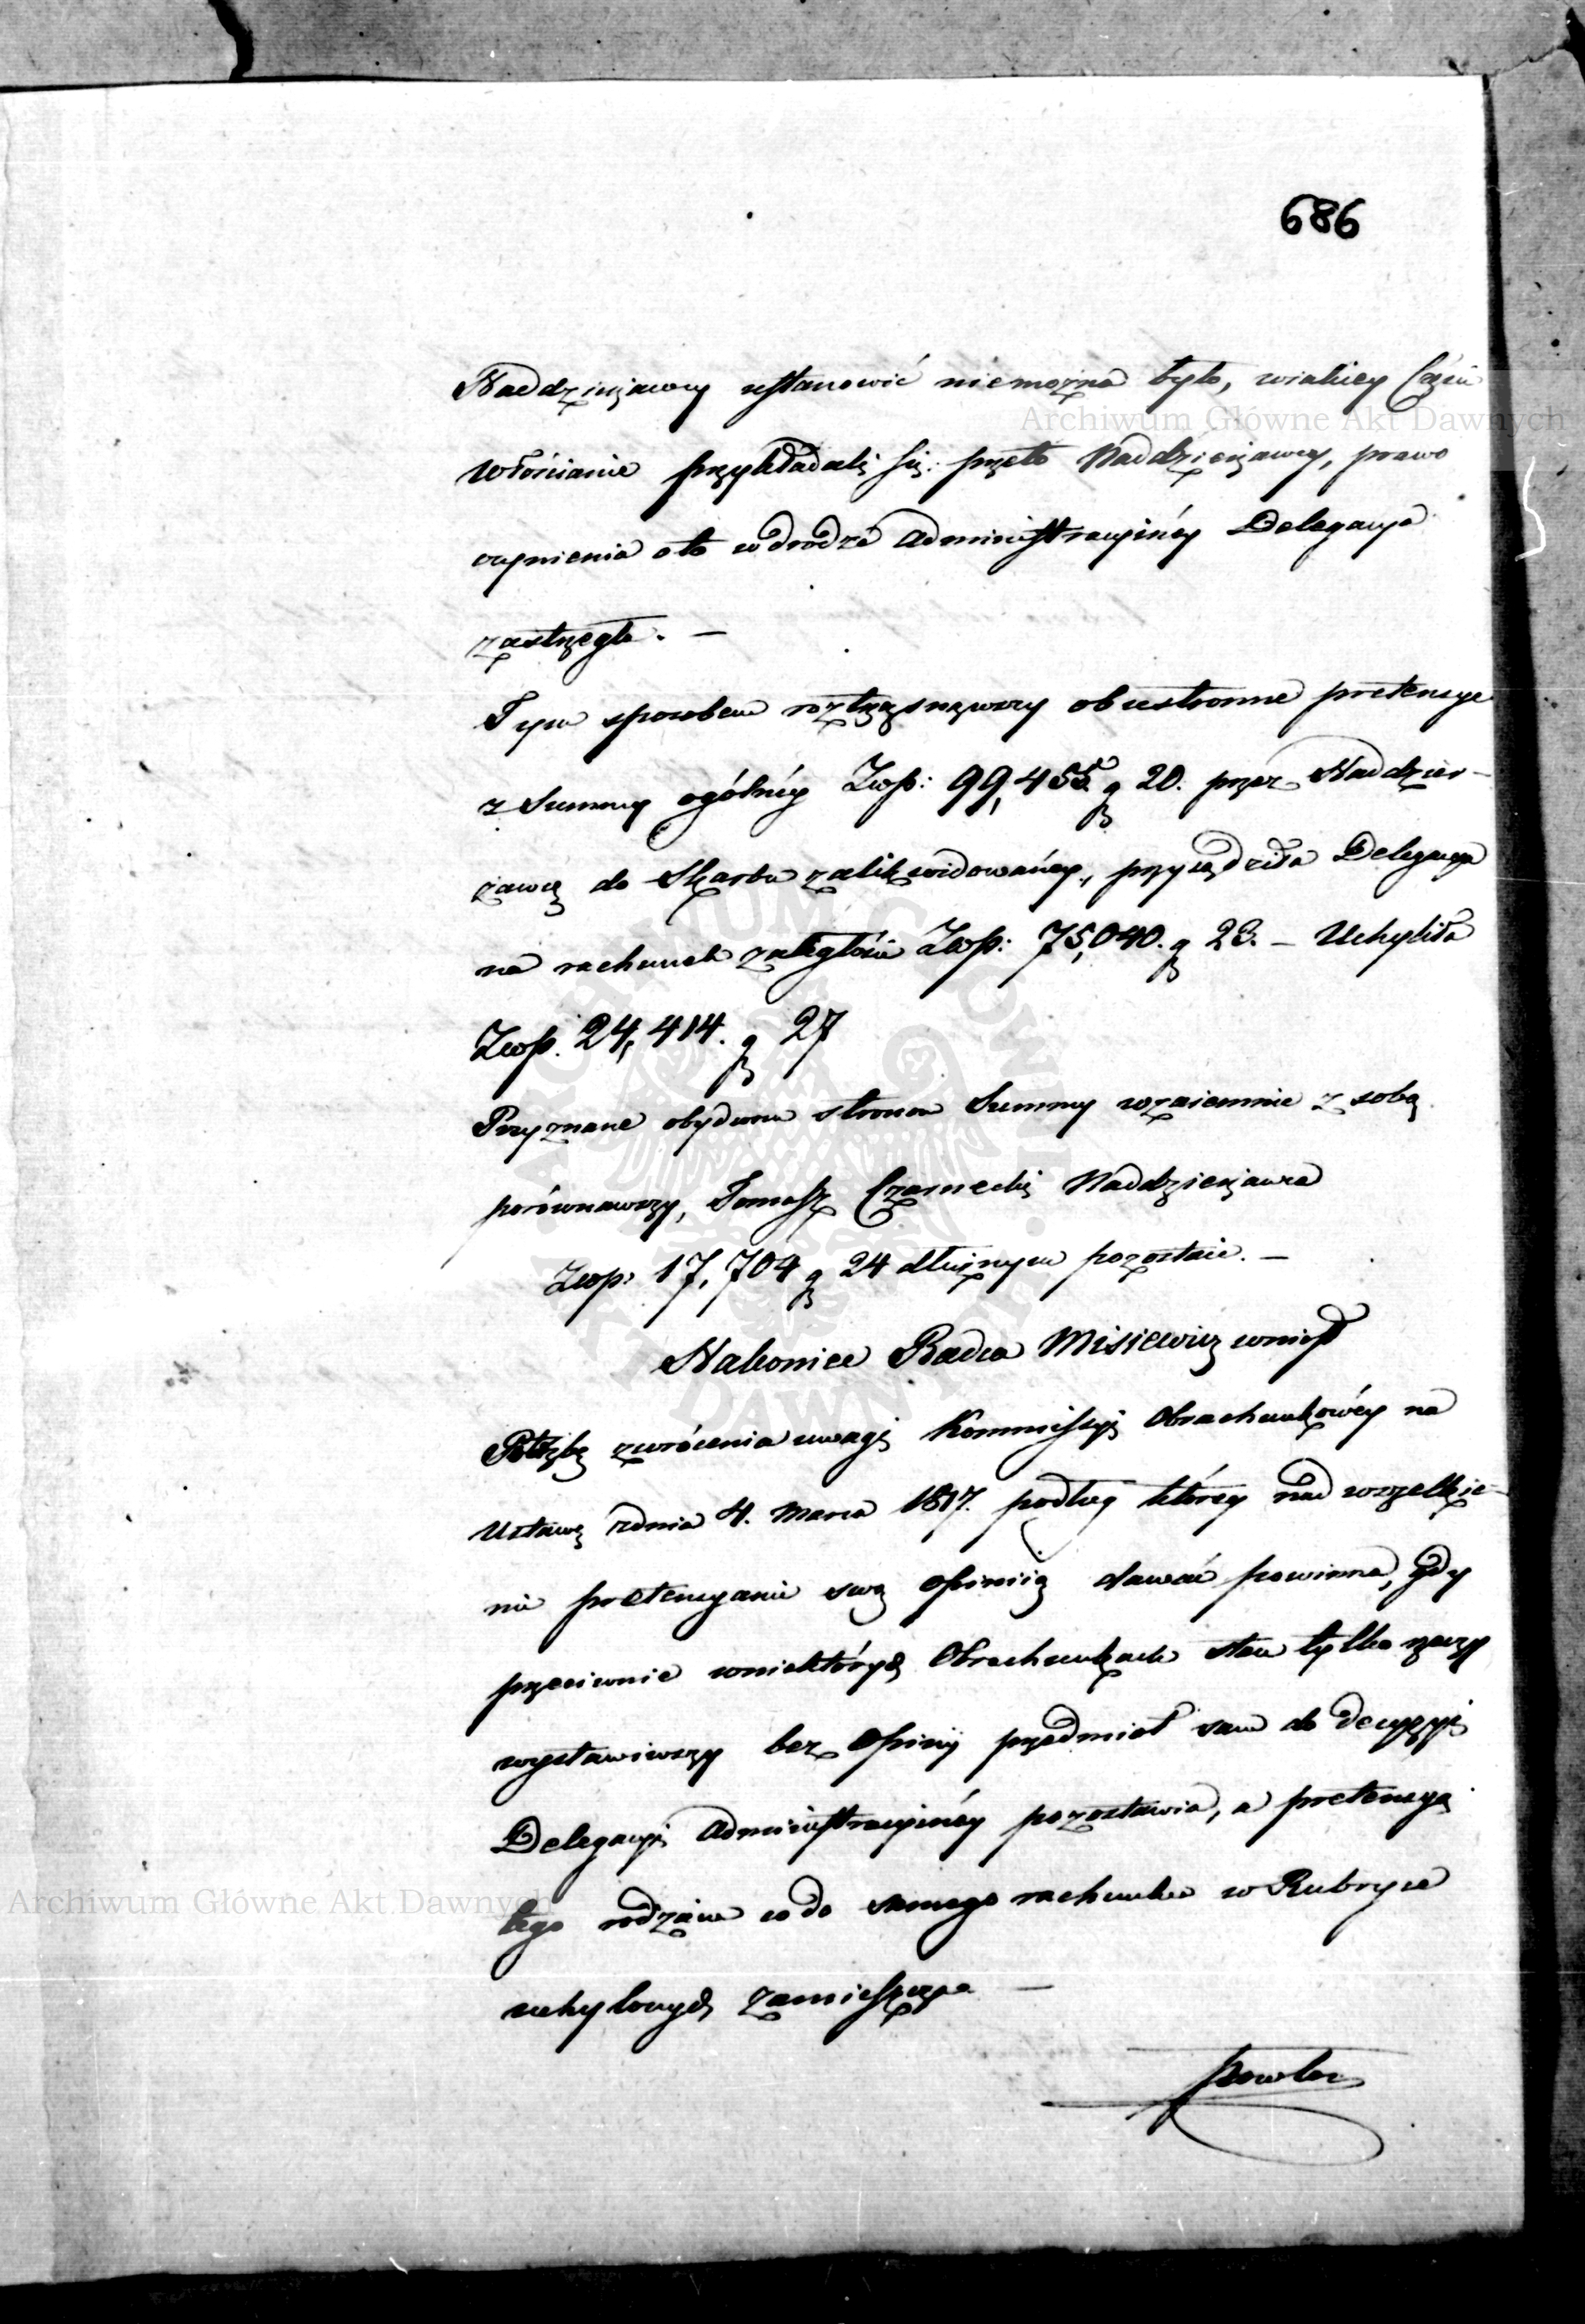 686
Naddzierżawcy ustanowić niemożna było, wiakiey Częśći
Włościanie przykładali się: przeto Naddzierżawcy, prawo
czynienia oto wdrodze Administracyinéy Delegacya
zastrzegła. —
Tym sposobem roztrząsnąwszy obustronne pretensye
z Summy ogólnéy Złwp: 99,455 g 20. przez Naddzier-
żawcę do Skarbu zalikwidowanéy, przysądziła Delegacya
na rachunek zaległości Złwp: 75,040. g 23. — Uchyliła
Złwp. 24,414. g 27
Przyznane obydwu stronom Summy wzaiemnie z sobą
porównawszy, Tomasz Czarnecki Naddzierżawca
Złwp: 17,704 g 24 dłużnym pozostaie. —
Nakoniec Radca Misiewicz wniosł
Potrzbę zwrócenia uwagi Kommissyi Obrachunkowéy na
Ustawę zdnia 4. Marca 1817. podług któréy nad wszelkie-
mi pretensyami swą Opiniią dawać powinna, gdy
przeciwnie wniektórych Obrachunkach stan tylko rzeczy
wystawiwszy bez Opinii przedmiot sam do decyzyi
Delegacyi Administracyinéy pozostawia, a pretensyą
tego rodzaiu codo samego rachunku w Rubryce
uchylonych zamieszcza —
Archiwum Główne Akt Dawnych
Archiwum Główne Akt Dawnych
ARCHIWUM GŁÓWNE AKT DAWNYCH